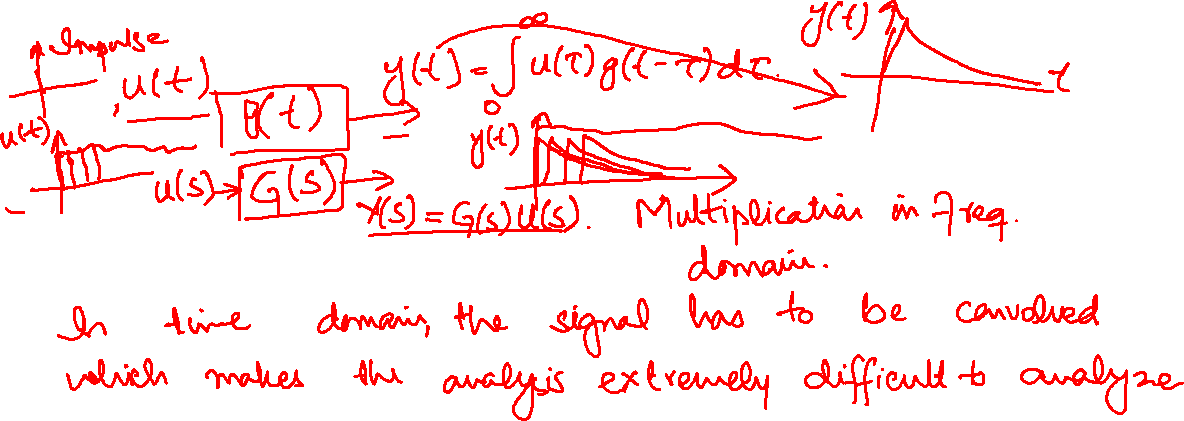 Impulse
u(t)
g(t)
y(t) = ∫₀^∞ u(τ) g(t-τ) dτ.
y(t)
t
u(t)
y(t)
u(s)
G(s)
Y(s) = G(s) U(s). Multiplication in Freq.
domain.
In time domain, the signal has to be convolved
which makes the analysis extremely difficult to analyze